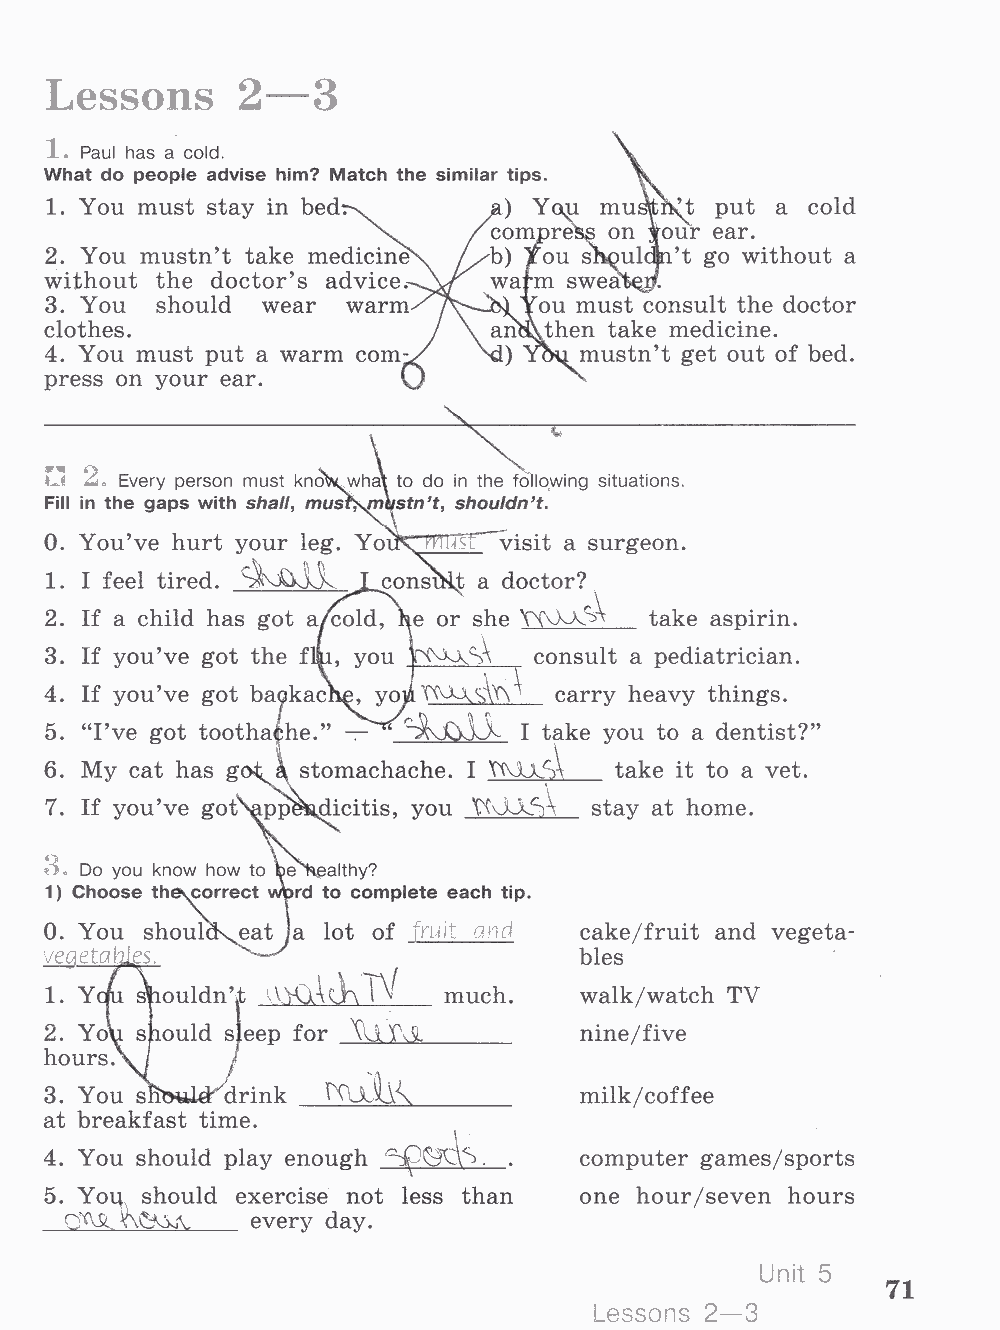 Lessons 2—3
1. Paul has a cold.
What do people advise him? Match the similar tips.
1. You must stay in bed.
2. You mustn't take medicine
without the doctor's advice.
3. You should wear warm
clothes.
4. You must put a warm com-
press on your ear.
a) You mustn't put a cold
compress on your ear.
b) You shouldn't go without a
warm sweater.
c) You must consult the doctor
and then take medicine.
d) You mustn't get out of bed.
2. Every person must know what to do in the following situations.
Fill in the gaps with shall, must, mustn't, shouldn't.
0. You've hurt your leg. You must visit a surgeon.
1. I feel tired. shall I consult a doctor?
2. If a child has got a cold, he or she must take aspirin.
3. If you've got the flu, you must consult a pediatrician.
4. If you've got backache, you mustn't carry heavy things.
5. “I've got toothache.” — “shall I take you to a dentist?”
6. My cat has got a stomachache. I must take it to a vet.
7. If you've got appendicitis, you must stay at home.
3. Do you know how to be healthy?
1) Choose the correct word to complete each tip.
0. You should eat a lot of fruit and cake/fruit and vegeta-
vegetables. bles
1. You shouldn't watch TV much. walk/watch TV
2. You should sleep for nine nine/five
hours.
3. You should drink milk milk/coffee
at breakfast time.
4. You should play enough sports. . computer games/sports
5. You should exercise not less than one hour/seven hours
one hour every day.
Unit 5
71
Lessons 2—3